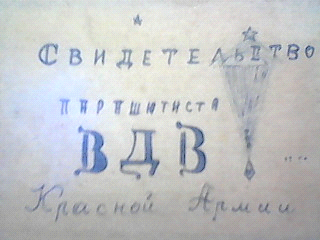 СВИДЕТЕЛЬСТВО
ПАРАШЮТИСТА
ВДВ
Красной Армии